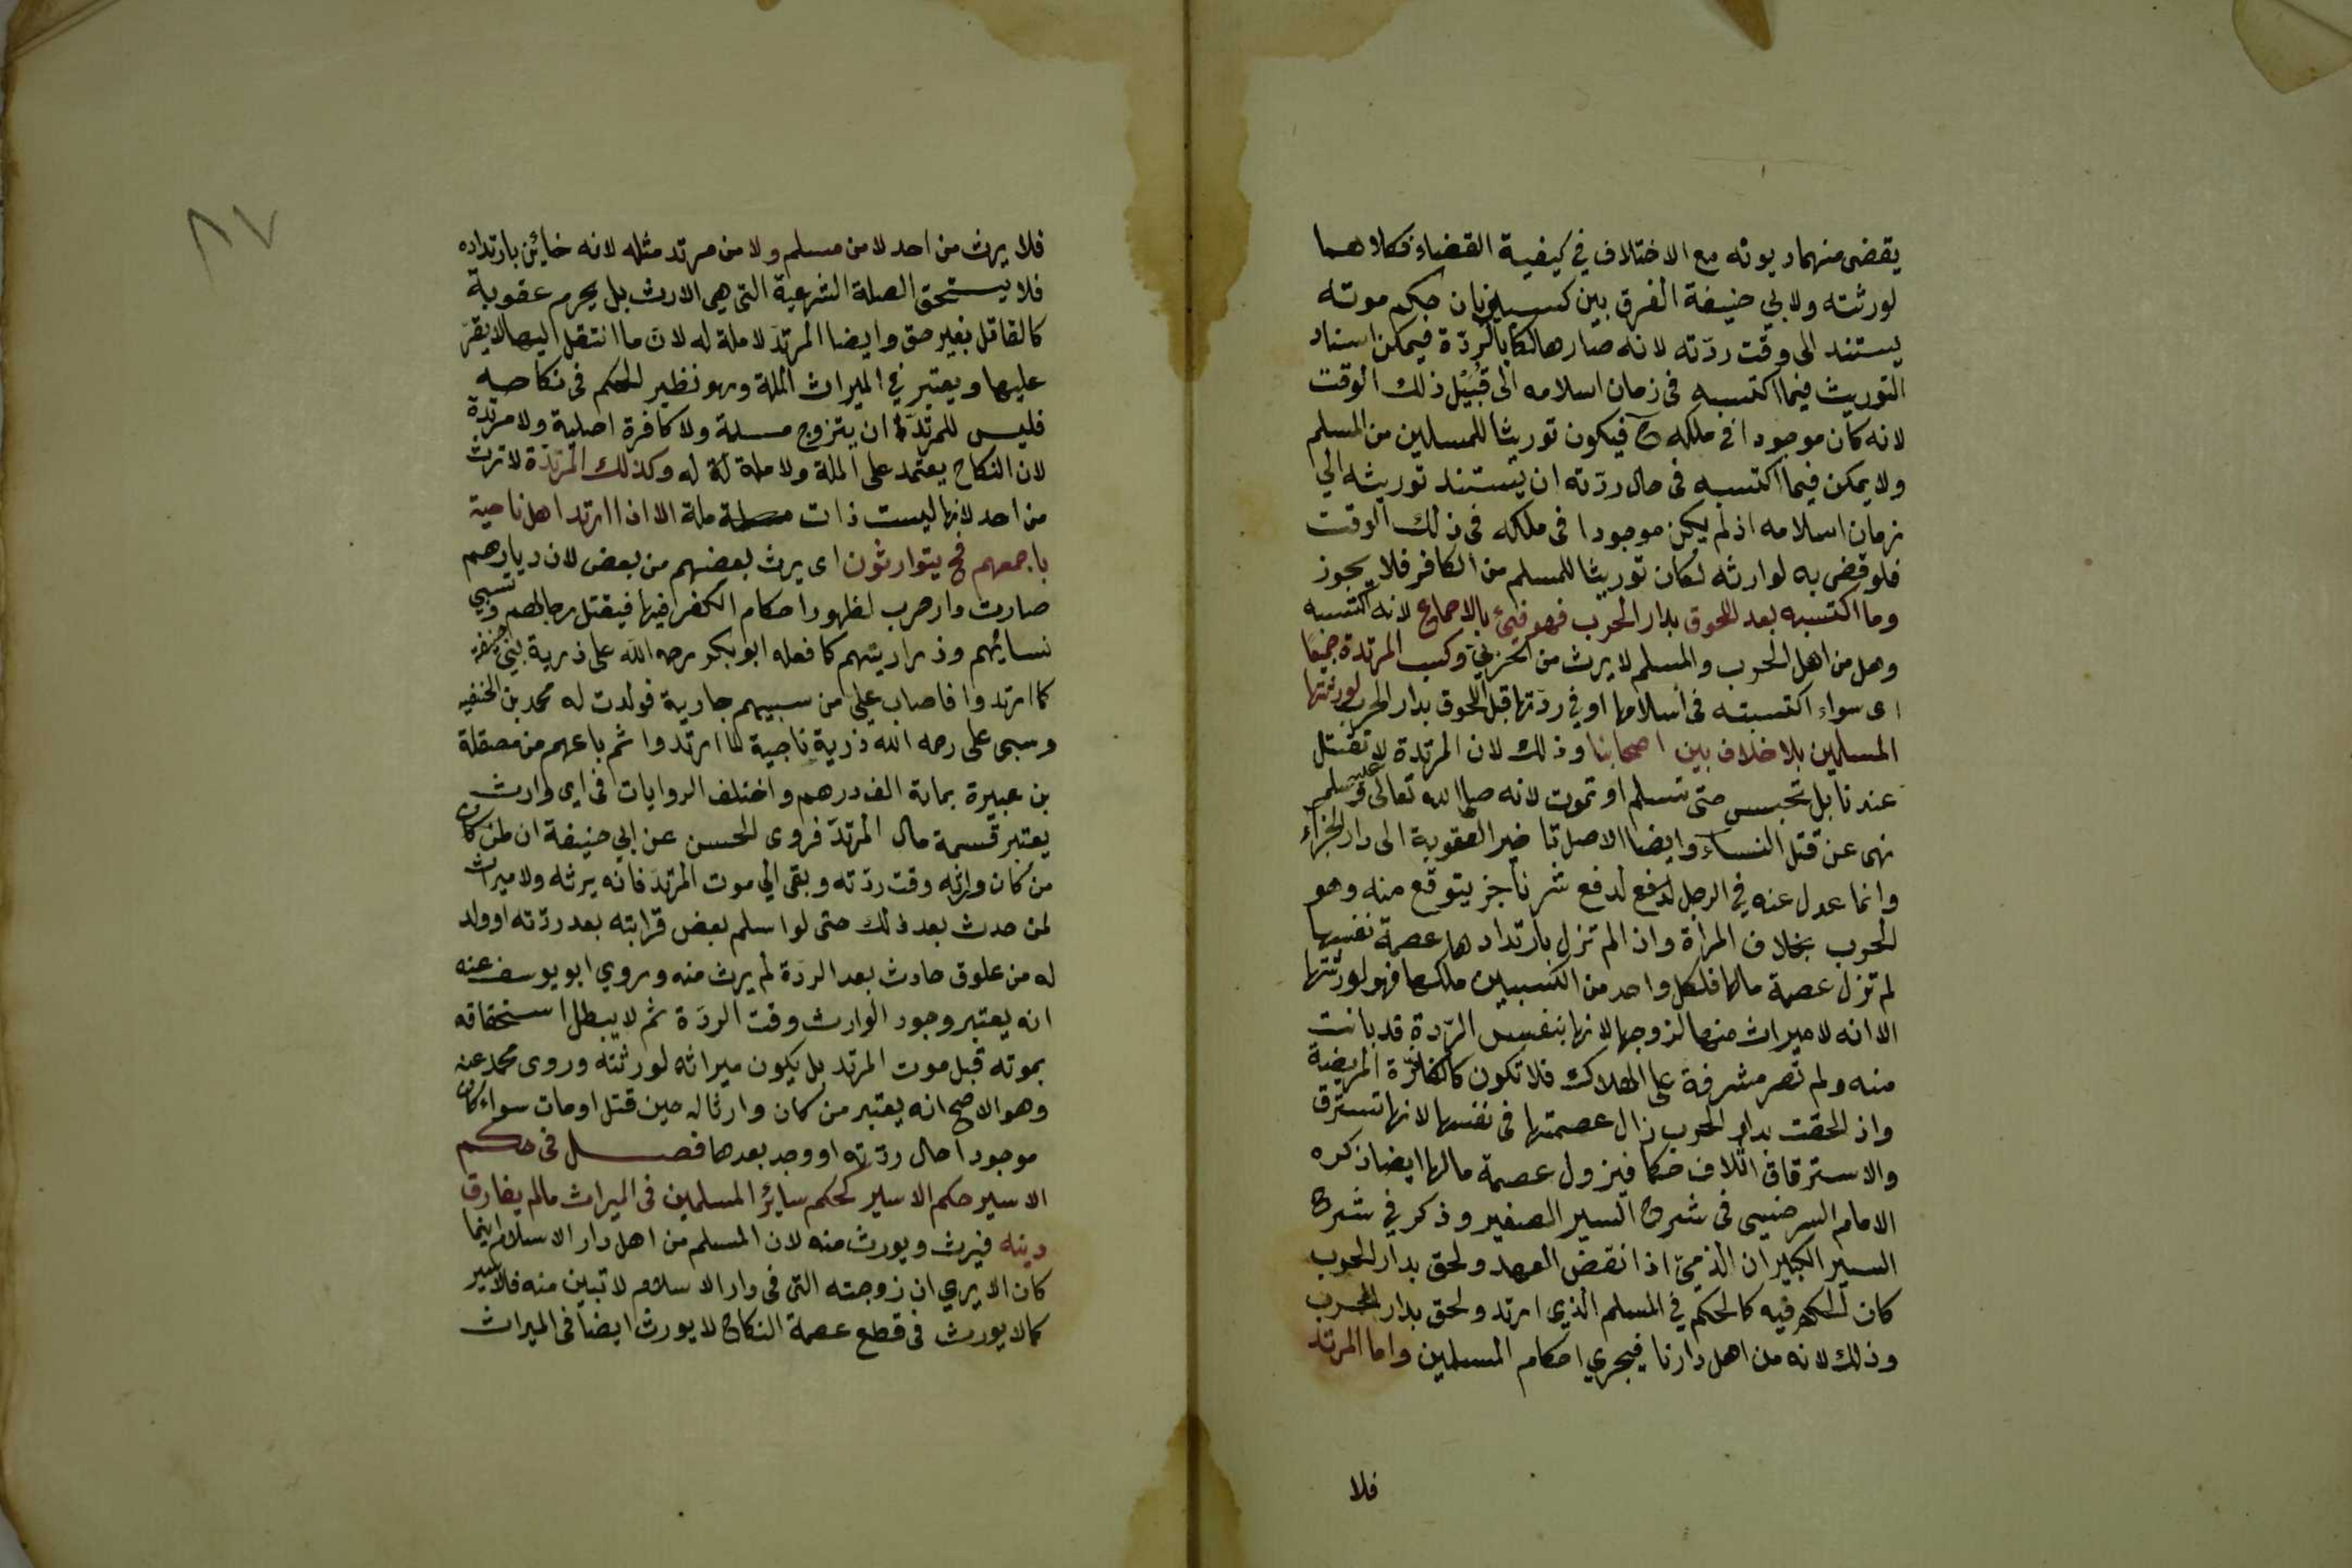 يقضى منهما ديونه مع الاختلاف في كيفية القضاء فكلاهما
لورثته ولابي حنيفة الفرق بين كسبين بان حكم موته
يستند الى وقت ردّته لانه صار هالكا بالردّة فيمكن اسناد
التوريث فيما اكتسبه فى زمان اسلامه الى قُبَيْل ذلك الوقت
لانه كان موجودا في ملكه ح فيكون توريثا للمسلمين من المسلم
ولا يمكن فيما اكتسبه فى حال ردّته ان يستند توريثه الي
زمان اسلامه اذ لم يكن موجودا فى ملكه فى ذلك الوقت
فلو قضى به لوارثه لكان توريثا للمسلم من الكافر فلا يجوز
وما اكتسبه بعد اللحوق بدار الحرب فهو فيئ بالاجماع لانه اكتسبه
وهل من اهل الحرب والمسلم لا يرث من الحربيّ وكسب المرتدة جميعًا
اى سواء اكتسبته فى اسلامها او في ردّتها قبل اللحوق بدار الحرب لورثتها
المسلمين بلا خلاف بين اصحابنا وذلك لان المرتدة لا تقتل
عندنا بل تحبس حتى تسلم او تموت لانه صلى الله تعالى عليه وسلم
نهى عن قتل النساء وايضا الاصل تاخير العقوبة الى دار الجزاء
وانما عدل عنه في الرجل لدفع لدفع شر ناجز يتوقع منه وهو
الحرب بخلاف المراة واذا لم تزل بارتدادها عصمة نفسها
لم تزل عصمة مالها فلكل واحد من الكسبين ملكها فهو لورثتها
الا انه لا ميراث منها لزوجها لانها بنفس الرّدة قد بانت
منه ولم تصر مشرفة على الهلاك فلا تكون كالفارّة المريضة
واذ لحقت بدار الحرب زال عصمتها فى نفسها لانها تسترق
والاسترقاق اتلاف حكما فيزول عصمة مالها ايضا ذكره
الامام السرخسى فى شرح السير الصغير وذكر في شرح
السير الكبير ان الذميّ اذا نقض العهد ولحق بدار الحرب
كان الحكم فيه كالحكم في المسلم الذي ارتد ولحق بدار الحرب
وذلك لانه من اهل دارنا فيجري احكام المسلمين واما المرتد
فلا
٨٧
فلا يرث من احد لا من مسلم ولا من مرتد مثله لانه خائن بارتداده
فلا يستحق الصلة الشرعية التى هى الارث بل يحرم عقوبة
كالقاتل بغير حق وايضا المرتدّ لا ملة له لانّ ما انتقل اليها لا يقرّ
عليها ويعتبر في الميراث الملة وهو نظير الحكم فى نكاحه
فليس للمرتدّ ان يتزوج مسلمة ولا كافرة اصلية ولا مرتدة
لان النكاح يعتمد على الملة ولا ملة له له وكذلك المرتدّة لا ترث
من احد لانها ليست ذات ملة الا اذا ارتد اهل ناحية
باجمعهم فح يتوارثون اى يرث بعضهم من بعض لان ديارهم
صارت دار حرب لظهور احكام الكفر فيها فيقتل رجالهم وتسبي
نسائهم وذراريتهم كما فعله ابو بكر رحمه الله على ذرية بني حنيفة
لما ارتدوا فاصاب علي من سبيهم جارية فولدت له محمد بن الحنفيه
وسبى على رحمه الله ذرية ناجية لما ارتدوا ثم باعهم من مصقلة
بن عبيرة بماىة الف درهم واختلف الروايات فى اى وارث
يعتبر قسمة مال المرتدّ فروى الحسن عن ابي حنيفة ان لمن كان
من كان وارثه وقت ردّته وبقى الي موت المرتدّ فانه يرثه ولا ميراث
لمن حدث بعد ذلك حتى لو اسلم بعض قرابته بعد ردّته او ولد
له من علوق حادث بعد الردّة لم يرث منه وروي ابو يوسف عنه
انه يعتبر وجود الوارث وقت الردّة ثم لا يبطل استحقاقه
بموته قبل موت المرتد بل يكون ميراثه لورثته وروى محمد عنه
وهو الاصح انه يعتبر من كان وارثا له حين قتل او مات سواء كان
موجودا حال ردّته او وجد بعدها فصل فى حكم
الاسير حكم الاسير كحكم سائر المسلمين فى الميراث مالم يفارق
دينه فيرث ويورث منه لان المسلم من اهل دار الاسلام اينما
كان الا يري ان زوجته التى فى دار الاسلام لا تبين منه
كما لا يورث فى قطع عصمة النكاح لا يورث ايضا فى الميراث